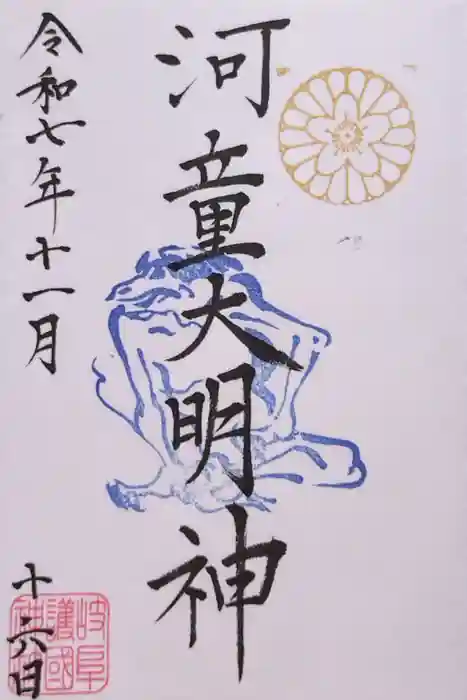 河童大明神
令和七年十一月
十六日
岐阜
護國